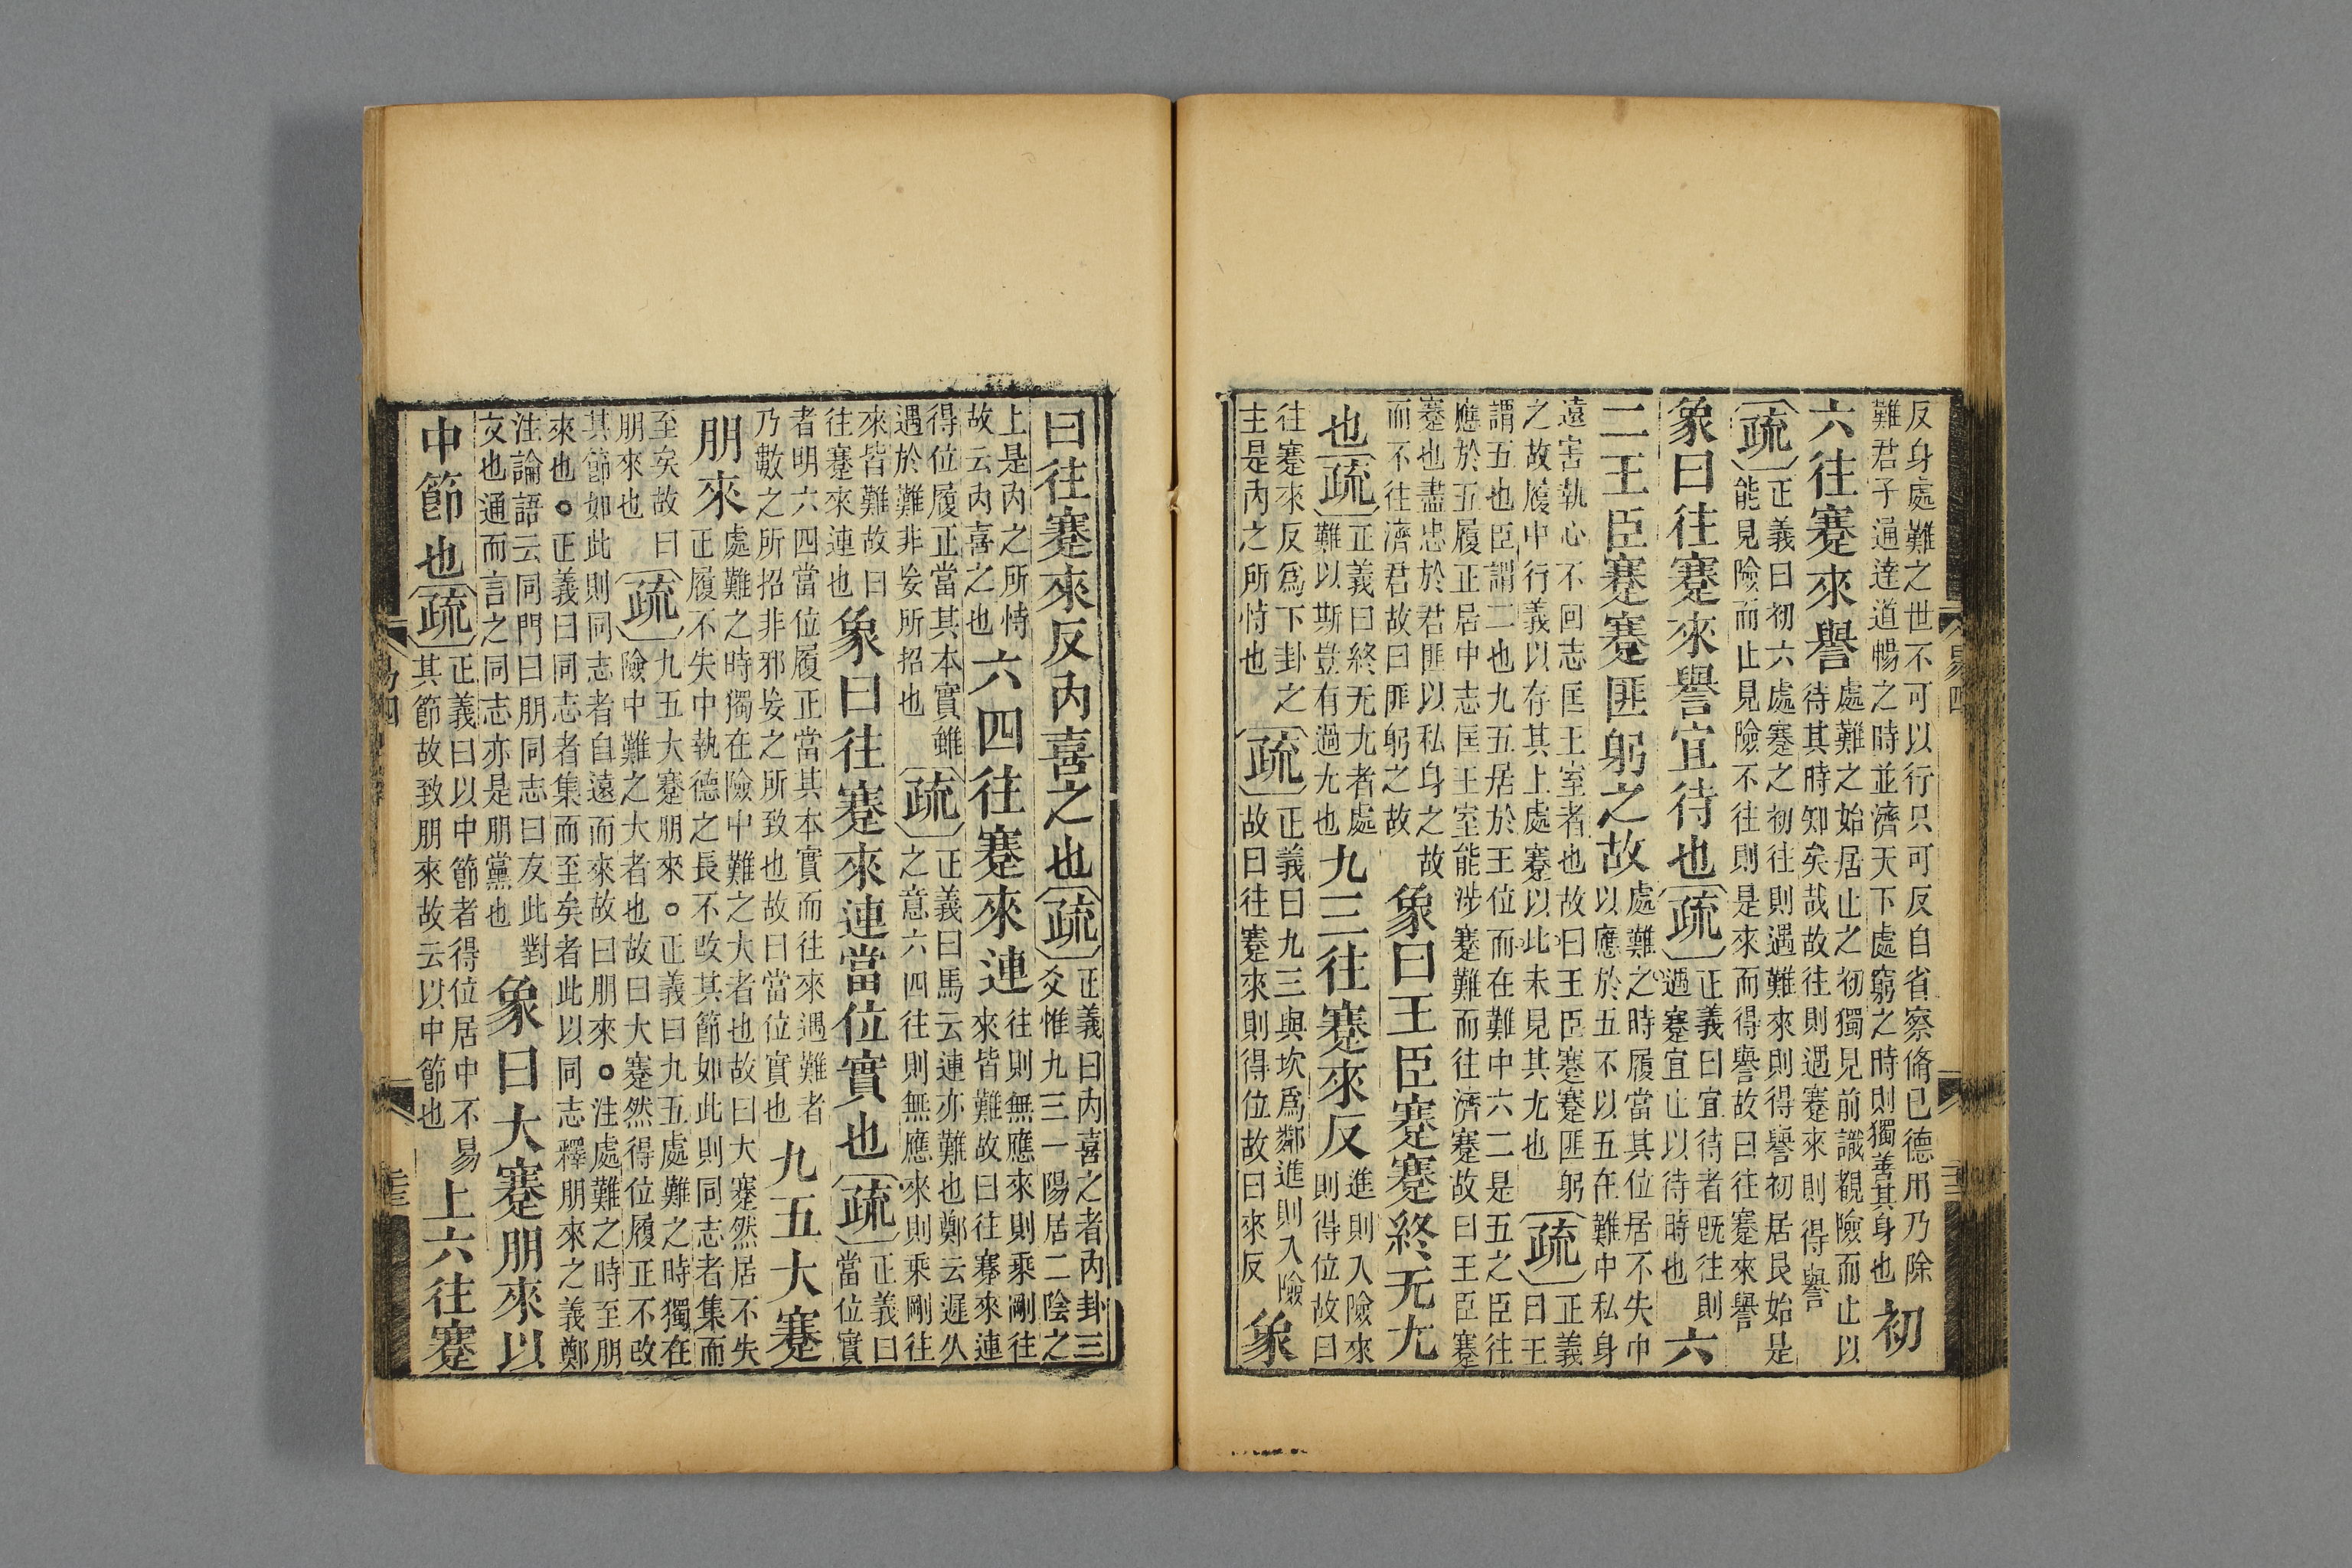 反身處難之世不可以行只可反自省察脩已德用乃除
難君子通達道暢之時並濟天下處窮之時則獨善其身也
初
六往蹇來譽
處難之始居止之初獨見前識覩險而止以
待其時知矣哉故往則遇蹇來則得譽
疏
正義曰初六處蹇之初往則遇難來則得譽初居艮始是
能見險而止見險不往則是來而得譽故曰往蹇來譽
象曰往蹇來譽宜待也
疏
正義曰宜待者旣往則
遇蹇宜止以待時也
六
二王臣蹇蹇匪躬之故
處難之時履當其位居不失中
以應於五不以五在難中私身
遠害執心不回志匡王室者也故曰王臣蹇蹇匪躬
之故履中行義以存其上處蹇以此未見其尤也
疏
正義
曰王
謂五也臣謂二也九五居於王位而在難中六二是五之臣往
應於五履正居中志匡王室能涉蹇難而往濟蹇故曰王臣蹇
蹇也盡忠於君匪以私身之故
而不往濟君故曰匪躬之故
象曰王臣蹇蹇終无尤
也
疏
正義曰終无尤者處
難以斯豈有過尤也
九三往蹇來反
進則入險來
則得位故曰
往蹇來反爲下卦之
主是內之所恃也
疏
正義曰九三與坎爲鄰進則入險
故曰往蹇來則得位故曰來反
象
易四
曰往蹇來反內喜之也
疏
正義曰內喜之者內卦三
爻惟九三一陽居二陰之
上是內之所恃
故云內喜之也
六四往蹇來連
往則無應來則乘剛往
來皆難故曰往蹇來連
得位履正當其本實雖
遇於難非妄所招也
疏
正義曰馬云連亦難也鄭云遲久
之意六四往則無應來則乘剛往
來皆難故曰
往蹇來連也
象曰往蹇來連當位實也
疏
正義曰
當位實
者明六四當位履正當其本實而往來遇難者
乃數之所招非邪妄之所致也故曰當位實也
九五大蹇
朋來
處難之時獨在險中難之大者也故曰大蹇然居不失
正履不失中執德之長不改其節如此則同志者集而
至矣故曰
朋來也
疏
九五大蹇朋來○正義曰九五處難之時獨在
險中難之大者也故曰大蹇然得位履正不改
其節如此則同志者自遠而來故曰朋來○注處難之時至朋
來也○正義曰同志者集而至矣者此以同志釋朋來之義鄭
注論語云同門曰朋同志曰友此對
文也通而言之同志亦是朋黨也
象曰大蹇朋來以
中節也
疏
正義曰以中節者得位居中不易
其節故致朋來故云以中節也
上六往蹇
易四